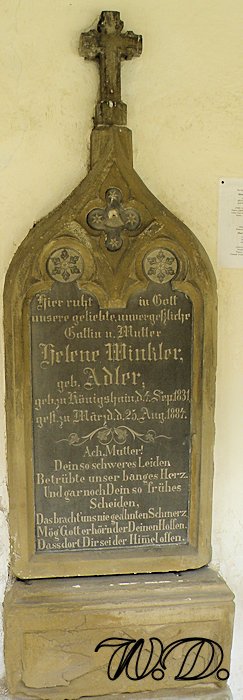 Hier ruht in Gott
unsere geliebte, unvergeßliche
Gattin u. Mutter
Helene Winkler,
geb. Adler,
geb. zu Königshain, d. 4. Sep. 1831
gest. zu Märzd. d. 25. Aug. 1884.
Ach, Mutter!
Dein so schweres Leiden
Betrübte unser banges Herz.
Und gar noch Dein so frühes
Scheiden,
Das bracht uns nie geahnten Schmerz
Mög Gott erhörn der Deinen Hoffen.
Dass dort Dir sei der Himel offen.
W.D.